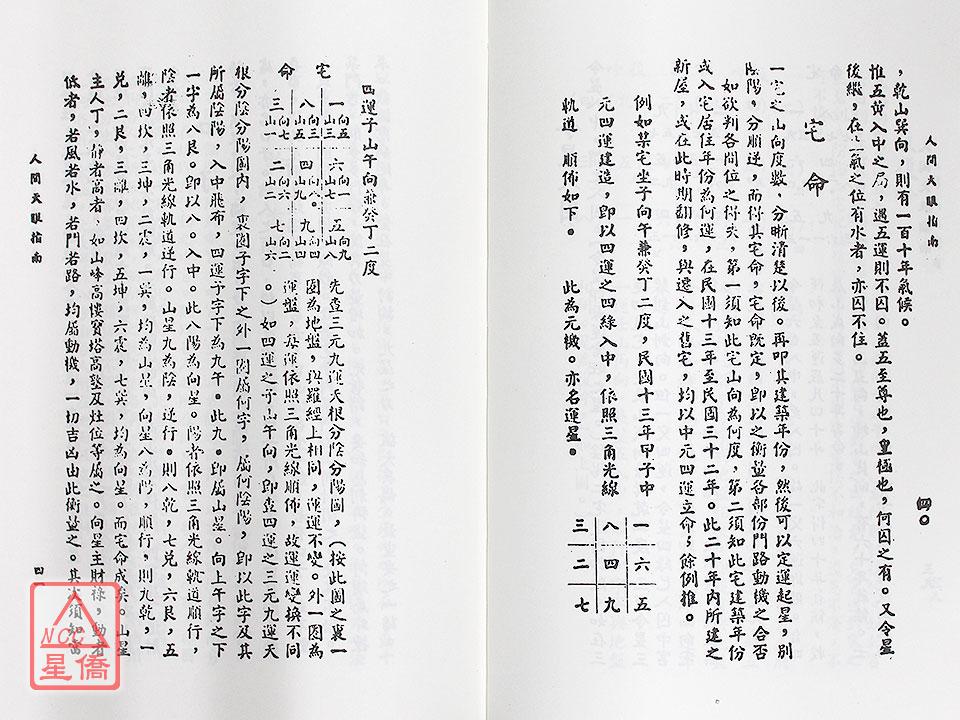 人間天眼指南
四〇
，乾山巽向，則有一百十年氣候。
惟五黄入中之局，遇五運則不囚。蓋五至尊也，皇極也，何囚之有。又令星
後繼，在氣之位有水者，亦囚不住。
宅命
一宅之山向度數，分晰清楚以後。再叩其建築年份，然後可以定運起星，別
陰陽，分順逆，而得其宅命，宅命既定，即以之衡量各部份門路動機之合否
如欲判各間位之得失，第一須知此宅山向為何度，第二須知此宅建築年份
或入宅居住年份為何運，在民國十三年至民國三十二年。此二十年內所建之
新屋，或在此時期翻修，與遷入之舊宅，均以中元四運立命，餘例推。
例如某宅坐子向午兼癸丁二度，民國十三年甲子中
元四運建造，即以四運之四綠入中，依照三角光線
軌道　順佈如下。　此為元機。亦名運星。
一　六　五
八　四　九
三　二　七
四運子山午向兼癸丁二度
宅命
一向五山三　六向一山七　五向九山八
八向三山五　四向八山九　九山四
三向七山一　二向六山二　七山六
先查三元九運天根分陰分陽圖，（按此圖之裏一
圈為地盤，與羅經上相同，運運不變。外一圈為
運盤，每運依照三角光線順佈，故運運變換不同
。）如四運之子山午向，即查四運之三元九運天
根分陰分陽圖內，裏圈子字下之外一圈屬何字，屬何陰陽，即以此字及其
所屬陰陽，入中飛布，四運子字下為九午。此九。即屬山星。向上午字之下
一字為八艮。即以八。入中。此八陽為向星。陽者依照三角光線軌道順行，
陰者依照三角光線軌道逆行。山星九為陰，逆行。則八乾，七兌，六艮，五
離，四坎，三坤，二震，一巽，均為山星，向星八為陽，順行，則九乾，一
兌，二艮，三離，四坎，五坤，六震，七巽，均為向星。而宅命成矣。山星
主人丁，靜者高者，如山峰高樓寶塔高墊及灶位等屬之。向星主財祿，動者
低者，若風若水，若門若路，均屬動機，一切吉凶由此衡量之。其次須如當
人間天眼指南
四一
NCC
星僑